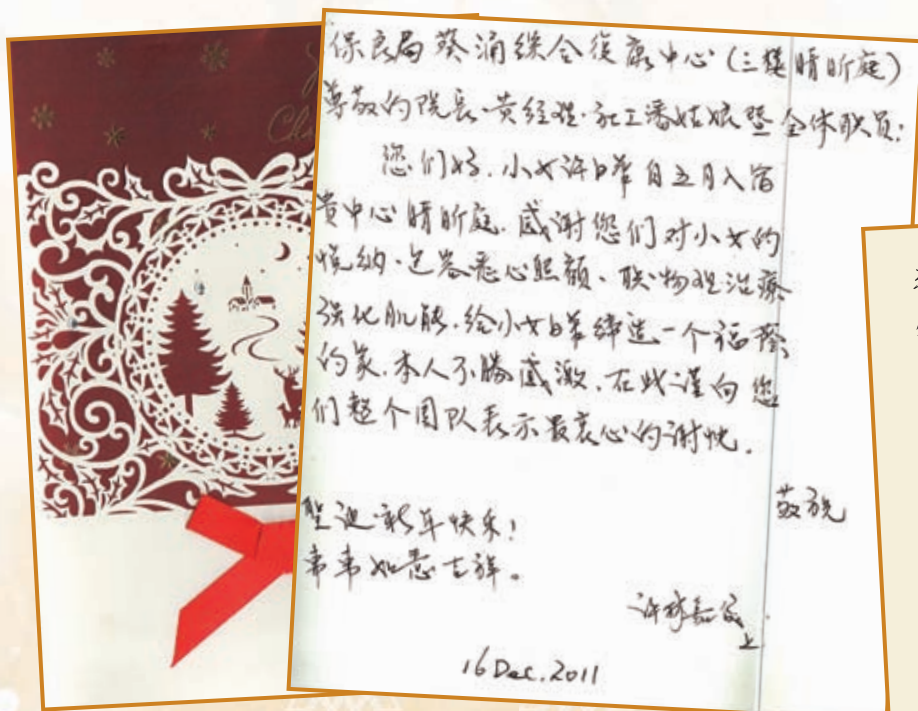 保良局 葵涌综合復康中心(三楼晴昕庭)
尊敬的院长、黄经理、社工潘姑娘暨全体职员:
您们好.小女许 自五月入宿
贵中心晴昕庭.感谢您们对小女的
悦纳、包容悉心照顾、联、物理治療
强化肌能.给小女 缔造一个福荫
的家.本人不勝感激.在此谨向您
们整个团队表示最衷心的谢忱.
敬祝
聖诞、新年快乐!
事事如意吉祥。
许 上
16 Dec. 2011